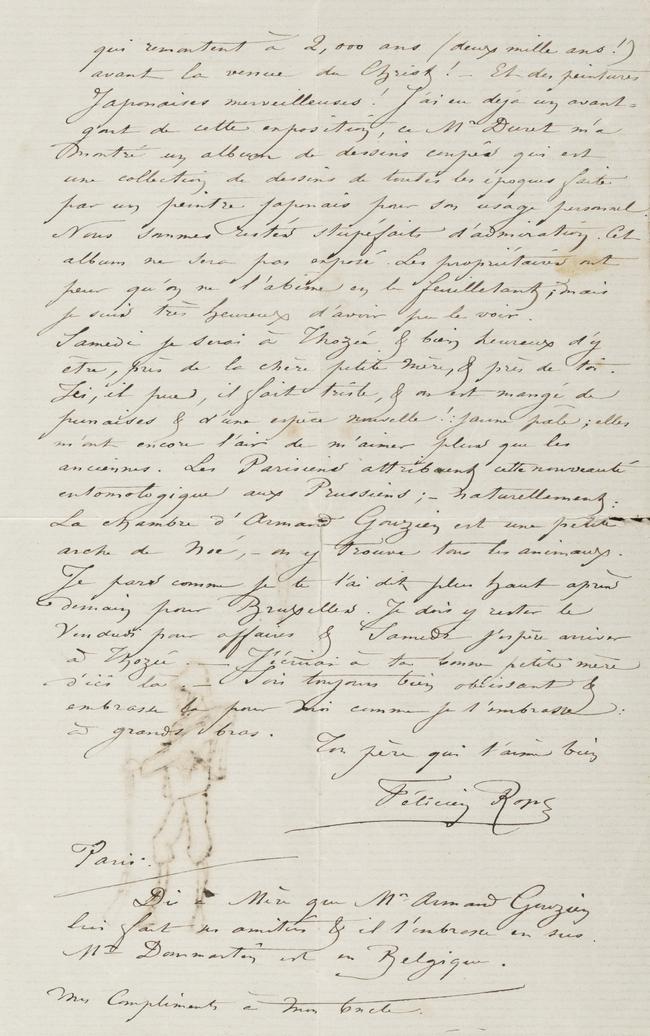 qui remontent à 2,000 ans (deux mille ans!)
avant la venue du Christ! - Et des peintures
Japonaises merveilleuses! J'ai eu déjà un avant-
goût de cette exposition, ce Mr Duret m'a
montré un album de dessins coupés qui est
une collection de dessins de toutes les époques faite
par un peintre japonais pour son usage personnel.
Nous sommes restés stupéfaits d'admiration. Cet
album ne sera pas exposé. Les propriétaires ont
peur qu'on ne l'abîme en le feuilletant; mais
je suis très heureux d'avoir pu le voir.
Samedi je serai à Thozée & bien heureux d'y
être, près de la chère petite mère, & près de toi.
Ici, il pue, il fait triste, & on est mangé de
punaises & d'une espèce nouvelle!: jaune pâle; elles
m'ont encore l'air de m'aimer plus que les
anciennes. Les Parisiens attribuent cette nouveauté
entomologique aux Prussiens; - naturellement.
La chambre d'Armand Gouzien est une petite
arche de Noé, - on y trouve tous les animaux.
Je pars comme je te l'ai dit plus haut après
demain pour Bruxelles. Je dois y rester le
Vendredi pour affaires & Samedi j'espère arriver
à Thozée - J'écrirai à ta bonne petite mère
d'ici là - Sois toujours bien obéissant &
embrasse la pour moi comme je t'embrasse:
à grands bras.
Ton père qui t'aime bien
Félicien Rops
Paris.
Dis à Mère que Mr Armand Gouzien
lui fait ses amitiés & il t'embrasse en sus.
Mr Dommartin est en Belgique.
Mes Compliments à Mon Oncle.